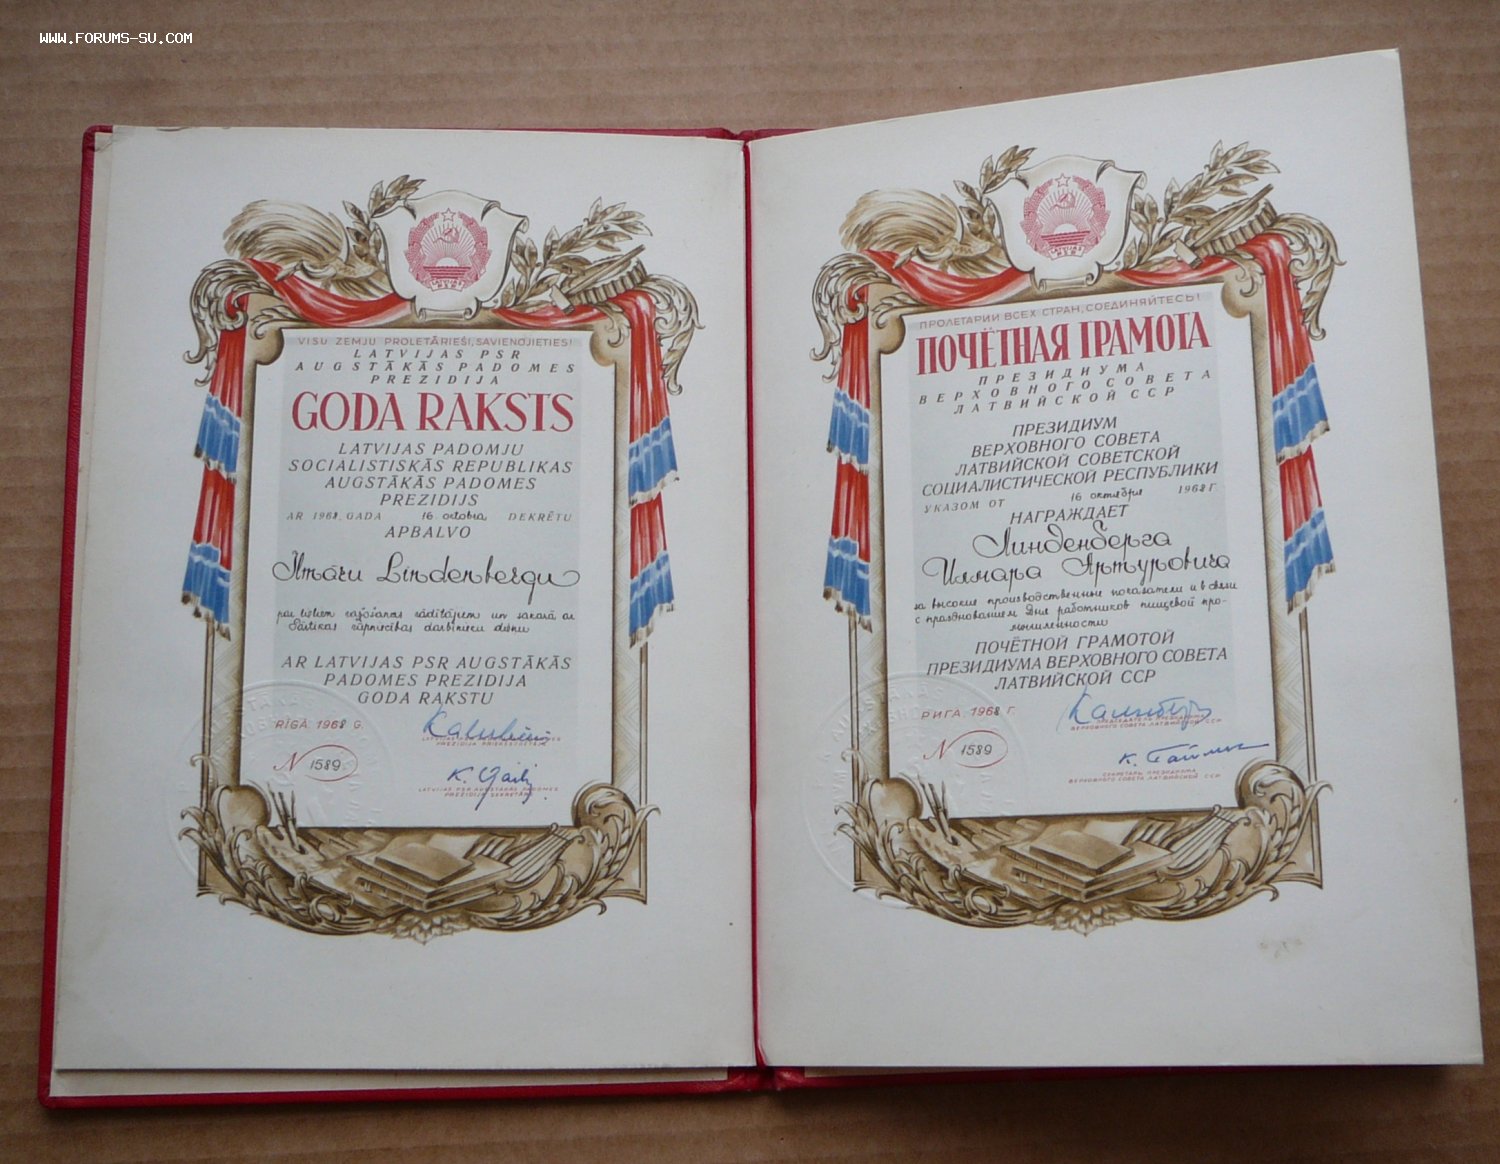 WWW.FORUMS-SU.COM
LATVIJAS
PSR
VISU ZEMJU PROLETĀRIEŠI, SAVIENOJIETIES!
LATVIJAS PSR
AUGSTĀKĀS PADOMES
PREZIDIJA
GODA RAKSTS
LATVIJAS PADOMJU
SOCIALISTISKĀS REPUBLIKAS
AUGSTĀKĀS PADOMES
PREZIDIJS
AR 1968. GADA 16 octobra DEKRĒTU
APBALVO
Ilmāru Lindenbergu
par labiem ražošanas rādītājiem un sakarā ar
Pārtikas rūpniecības darbinieku dienu
AR LATVIJAS PSR AUGSTĀKĀS
PADOMES PREZIDIJA
GODA RAKSTU
RĪGĀ, 1968 G.
LATVIJAS PSR AUGSTĀKĀS PADOMES
PREZIDIJA PRIEKŠSĒDĒTĀJS
N 1589
K. Gaili
LATVIJAS PSR AUGSTĀKĀS PADOMES
PREZIDIJA SEKRETĀRS
LATVIJAS
PSR
ПРОЛЕТАРИИ ВСЕХ СТРАН, СОЕДИНЯЙТЕСЬ!
ПОЧЁТНАЯ ГРАМОТА
ПРЕЗИДИУМА
ВЕРХОВНОГО СОВЕТА
ЛАТВИЙСКОЙ ССР
ПРЕЗИДИУМ
ВЕРХОВНОГО СОВЕТА
ЛАТВИЙСКОЙ СОВЕТСКОЙ
СОЦИАЛИСТИЧЕСКОЙ РЕСПУБЛИКИ
УКАЗОМ ОТ 16 октября 1968 Г.
НАГРАЖДАЕТ
Линденберга
Илмара Артуровича
за высокие производственные показатели и в связи
с празднованием Дня работников пищевой про-
мышленности
ПОЧЁТНОЙ ГРАМОТОЙ
ПРЕЗИДИУМА ВЕРХОВНОГО СОВЕТА
ЛАТВИЙСКОЙ ССР
РИГА, 1968 Г.
ПРЕДСЕДАТЕЛЬ ПРЕЗИДИУМА
ВЕРХОВНОГО СОВЕТА ЛАТВИЙСКОЙ ССР
N 1589
СЕКРЕТАРЬ ПРЕЗИДИУМА
ВЕРХОВНОГО СОВЕТА ЛАТВИЙСКОЙ ССР